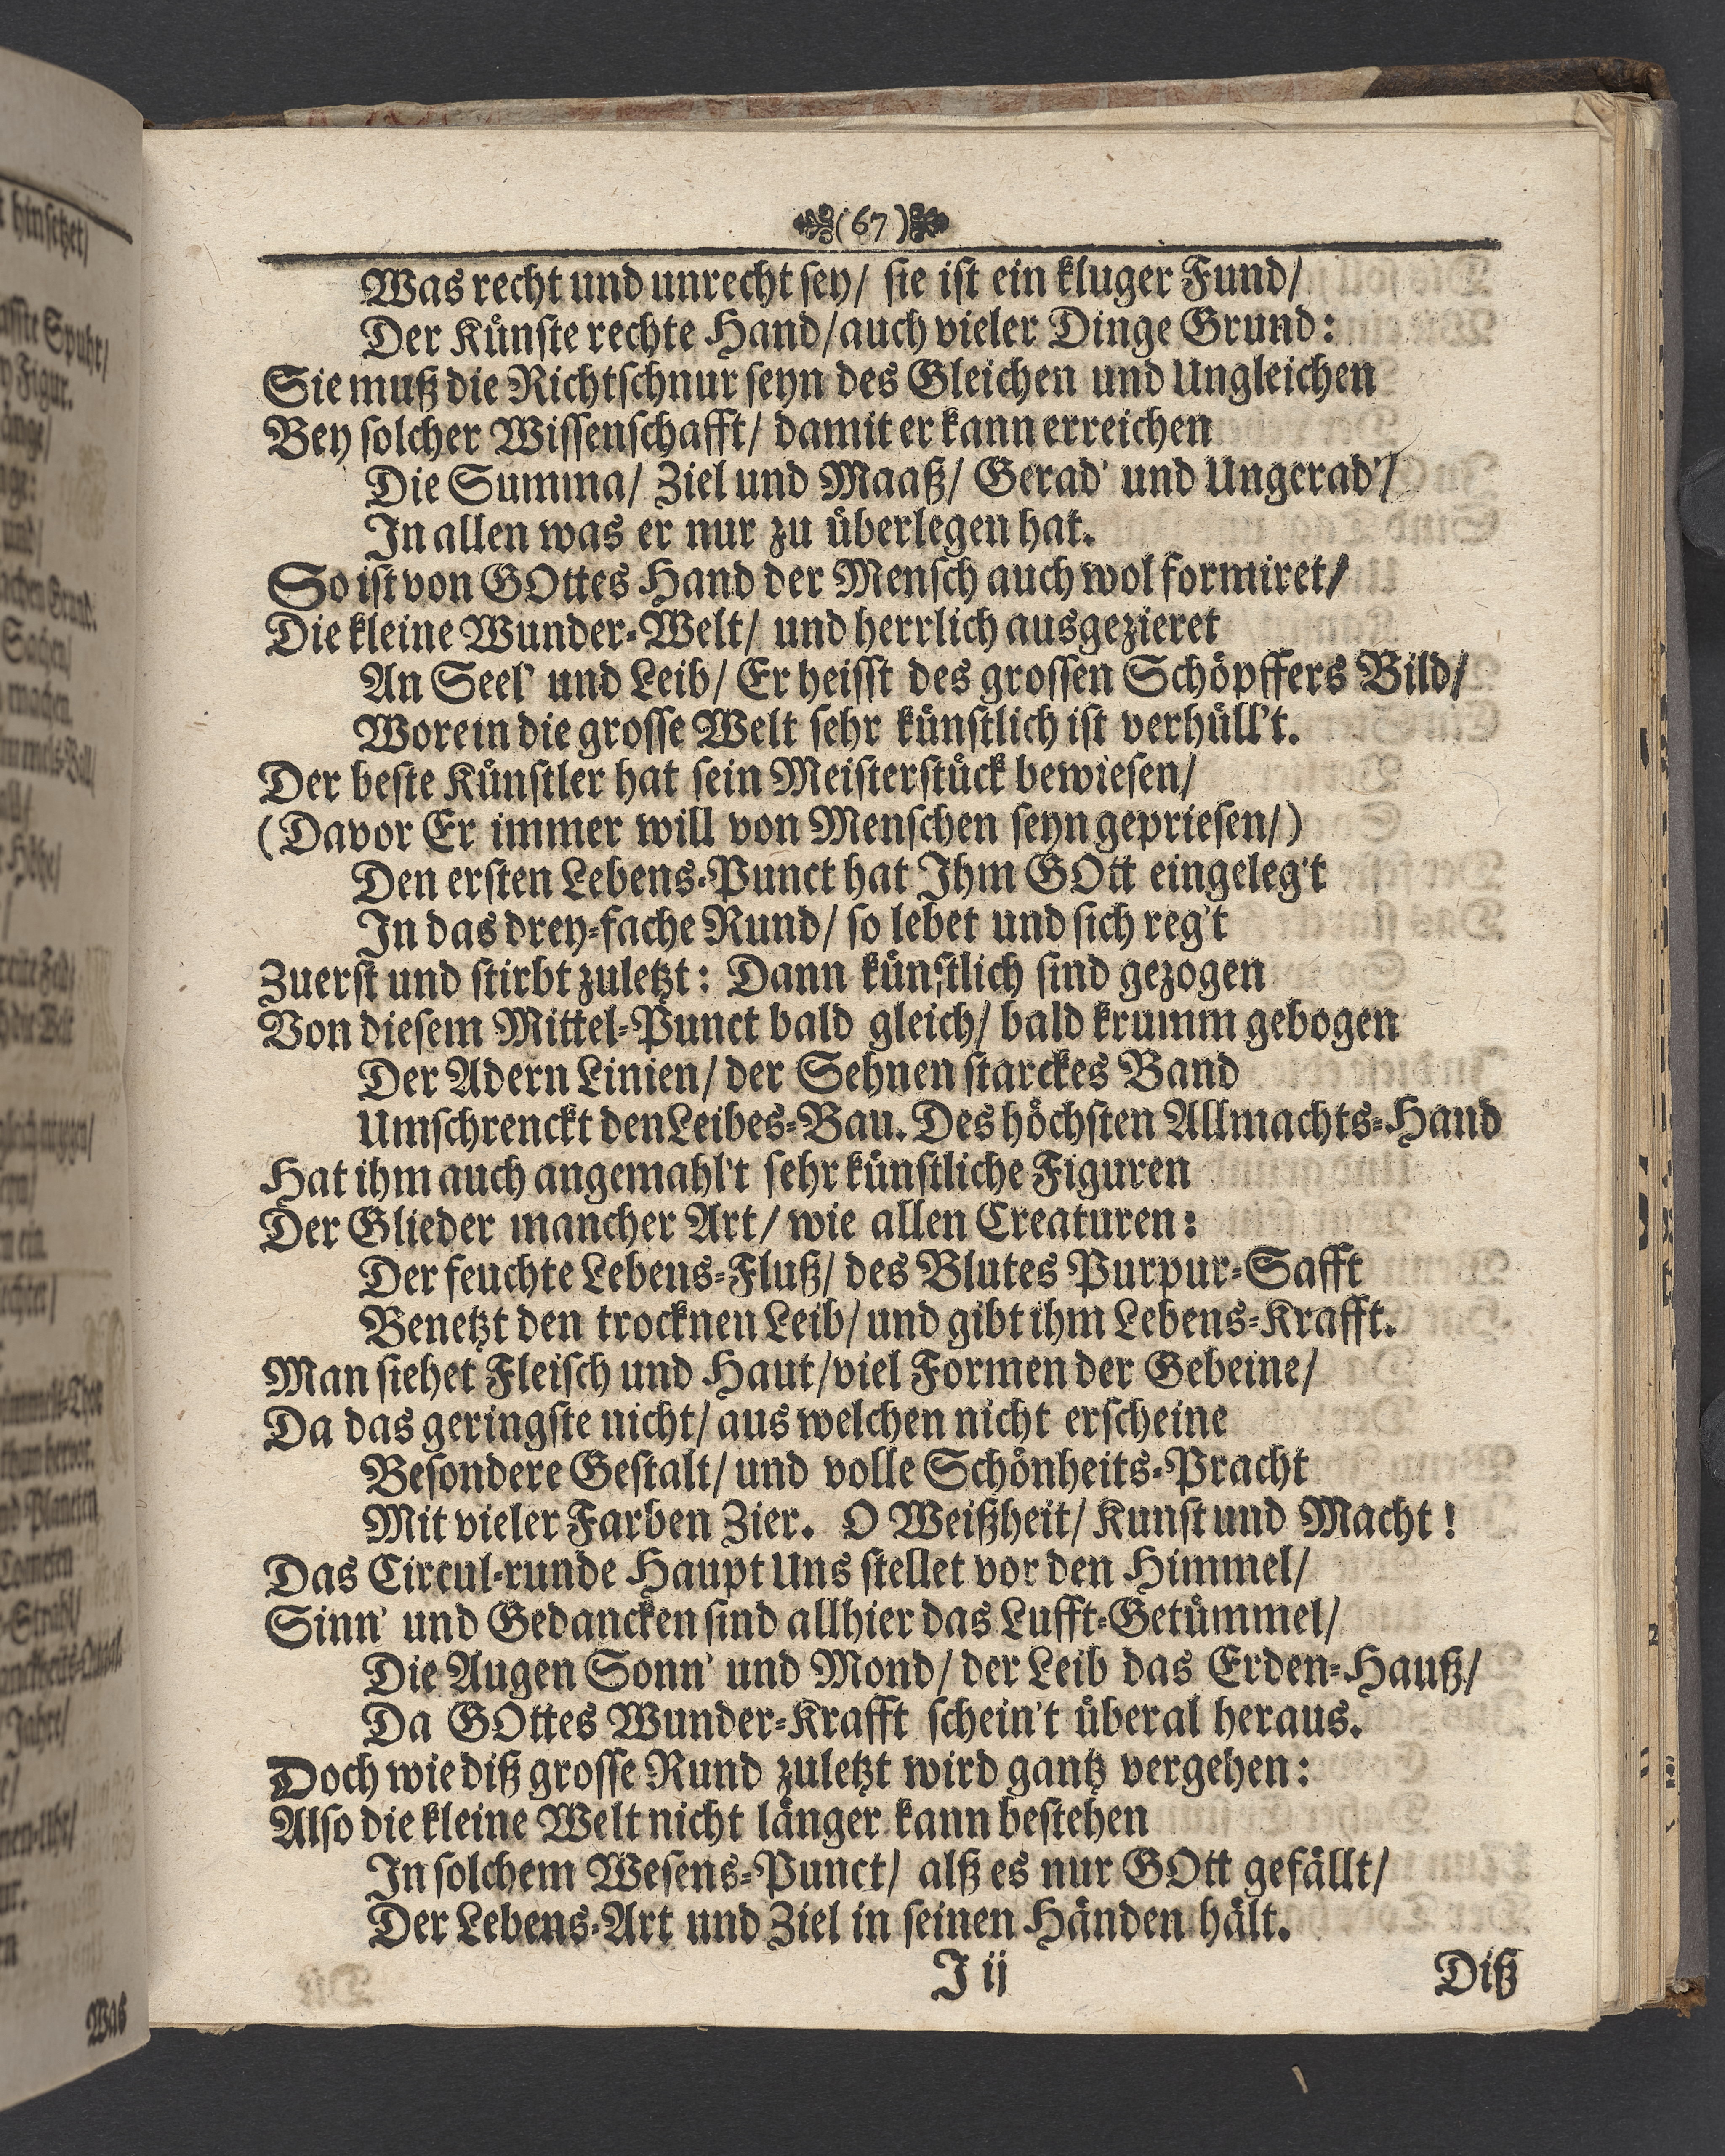 (67)
Was recht und unrecht sey/ sie ist ein kluger Fund/
Der Künste rechte Hand/auch vieler Dinge Grund:
Sie muß die Richtschnur seyn des Gleichen und Ungleichen
Bey solcher Wissenschafft/ damit er kann erreichen
Die Summa/ Ziel und Maaß/ Gerad' und Ungerad'/
In allen was er nur zu überlegen hat.
So ist von GOttes Hand der Mensch auch wol formiret/
Die kleine Wunder-Welt/ und herrlich ausgezieret
An Seel' und Leib/ Er heisst des grossen Schöpffers Bild/
Worein die grosse Welt sehr künstlich ist verhüll't.
Der beste Künstler hat sein Meisterstück bewiesen/
(Davor Er immer will von Menschen seyn gepriesen/)
Den ersten Lebens-Punct hat Ihm GOtt eingeleg't
In das drey-fache Rund/ so lebet und sich reg't
Zuerst und stirbt zuletzt: Dann künstlich sind gezogen
Von diesem Mittel-Punct bald gleich/ bald krumm gebogen
Der Adern Linien/ der Sehnen starckes Band
Umschrenckt den Leibes-Bau. Des höchsten Allmachts-Hand
Hat ihm auch angemahl't sehr künstliche Figuren
Der Glieder mancher Art/ wie allen Creaturen:
Der feuchte Lebens-Fluß/ des Blutes Purpur-Safft
Benetzt den trocknen Leib/ und gibt ihm Lebens-Krafft.
Man siehet Fleisch und Haut/viel Formen der Gebeine/
Da das geringste nicht/ aus welchen nicht erscheine
Besondere Gestalt/ und volle Schönheits-Pracht
Mit vieler Farben Zier. O Weißheit/ Kunst und Macht!
Das Circul-runde Haupt Uns stellet vor den Himmel/
Sinn' und Gedancken sind allhier das Lufft-Getümmel/
Die Augen Sonn' und Mond/ der Leib das Erden-Hauß/
Da GOttes Wunder-Krafft schein't überal heraus.
Doch wie diß grosse Rund zuletzt wird gantz vergehen:
Also die kleine Welt nicht länger kann bestehen
In solchem Wesens-Punct/ alß es nur GOtt gefällt/
Der Lebens-Art und Ziel in seinen Händen hält.
J ij
Diß